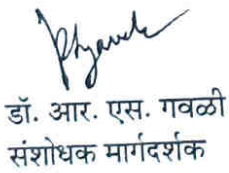 डॉ. आर. एस. गवळी
संशोधक मार्गदर्शक